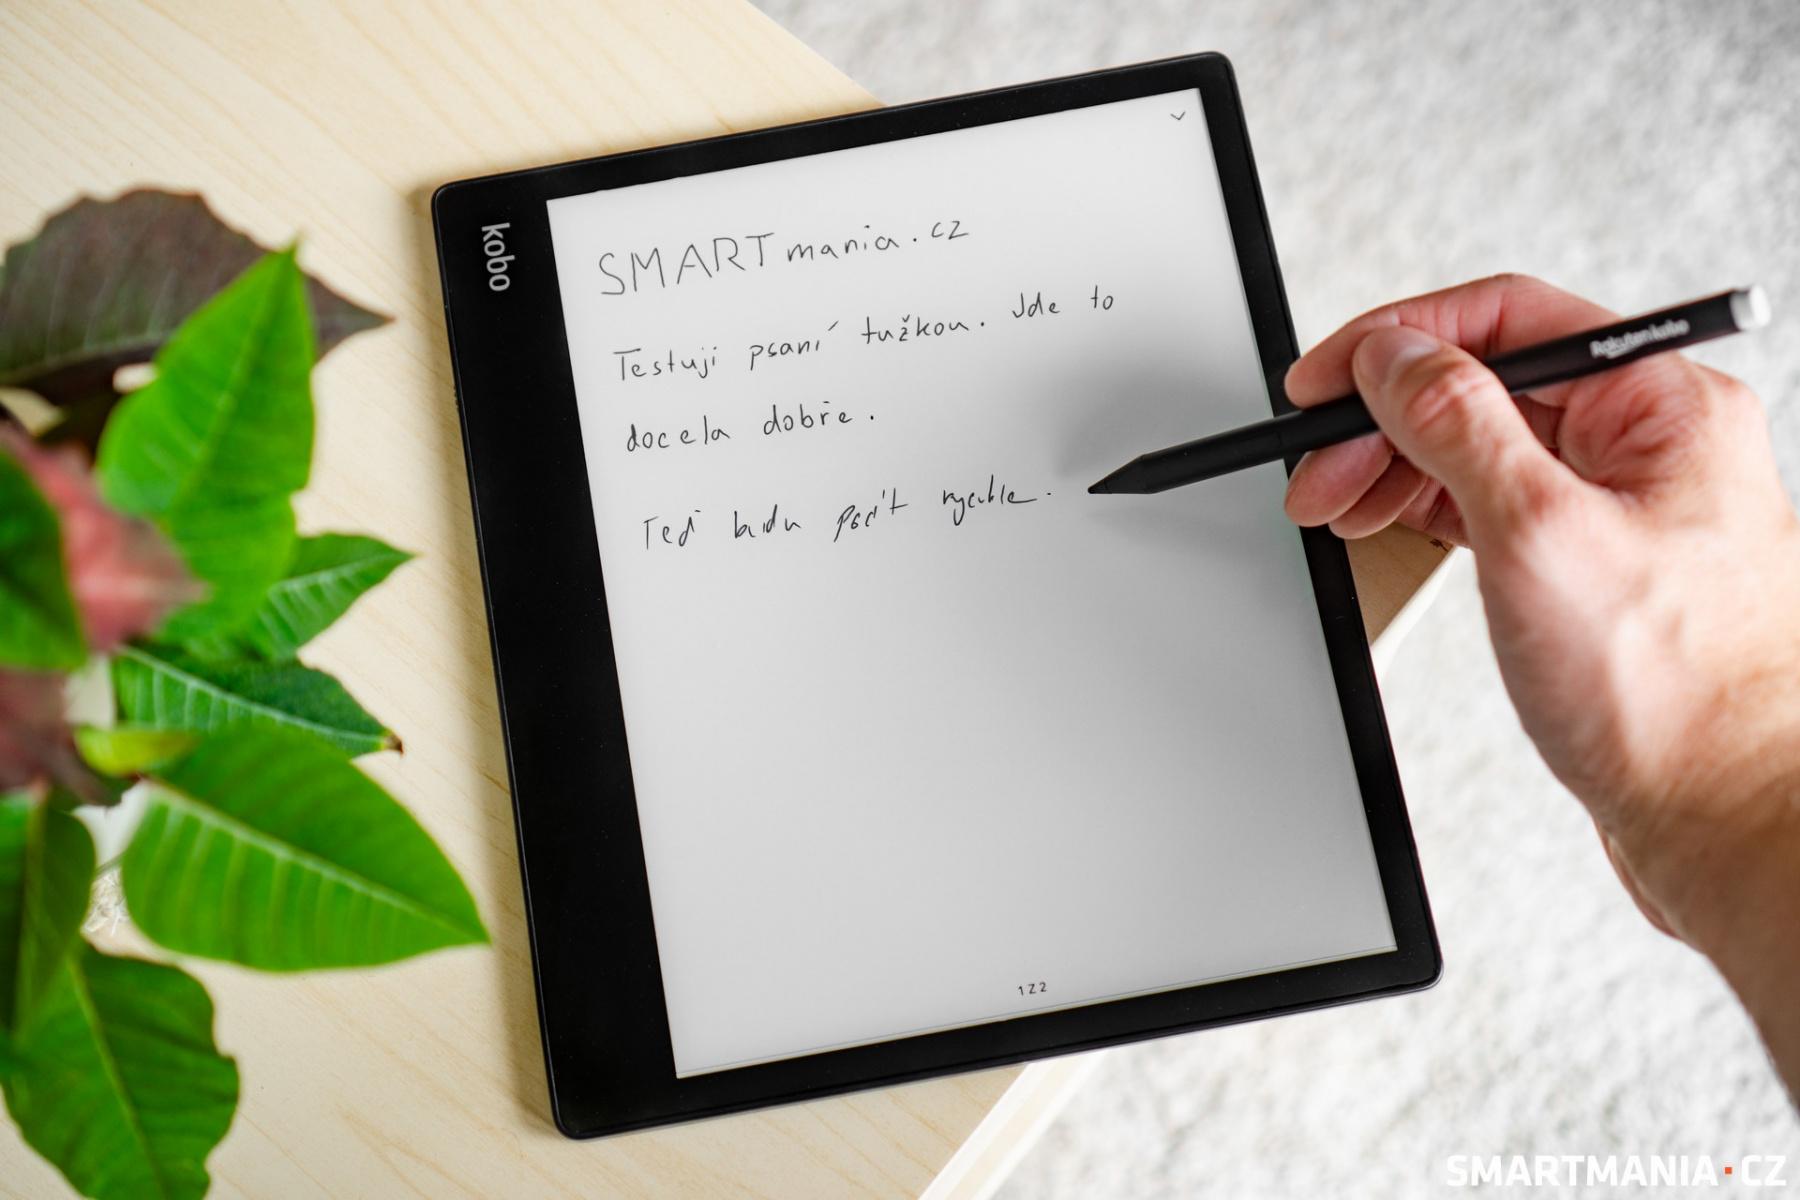 kobo
SMARTmania.cz
Testuji psaní tužkou. Jde to
docela dobře.
Teď budu psát rychle.
1Z2
Rakuten kobo
SMARTMANIA·CZ